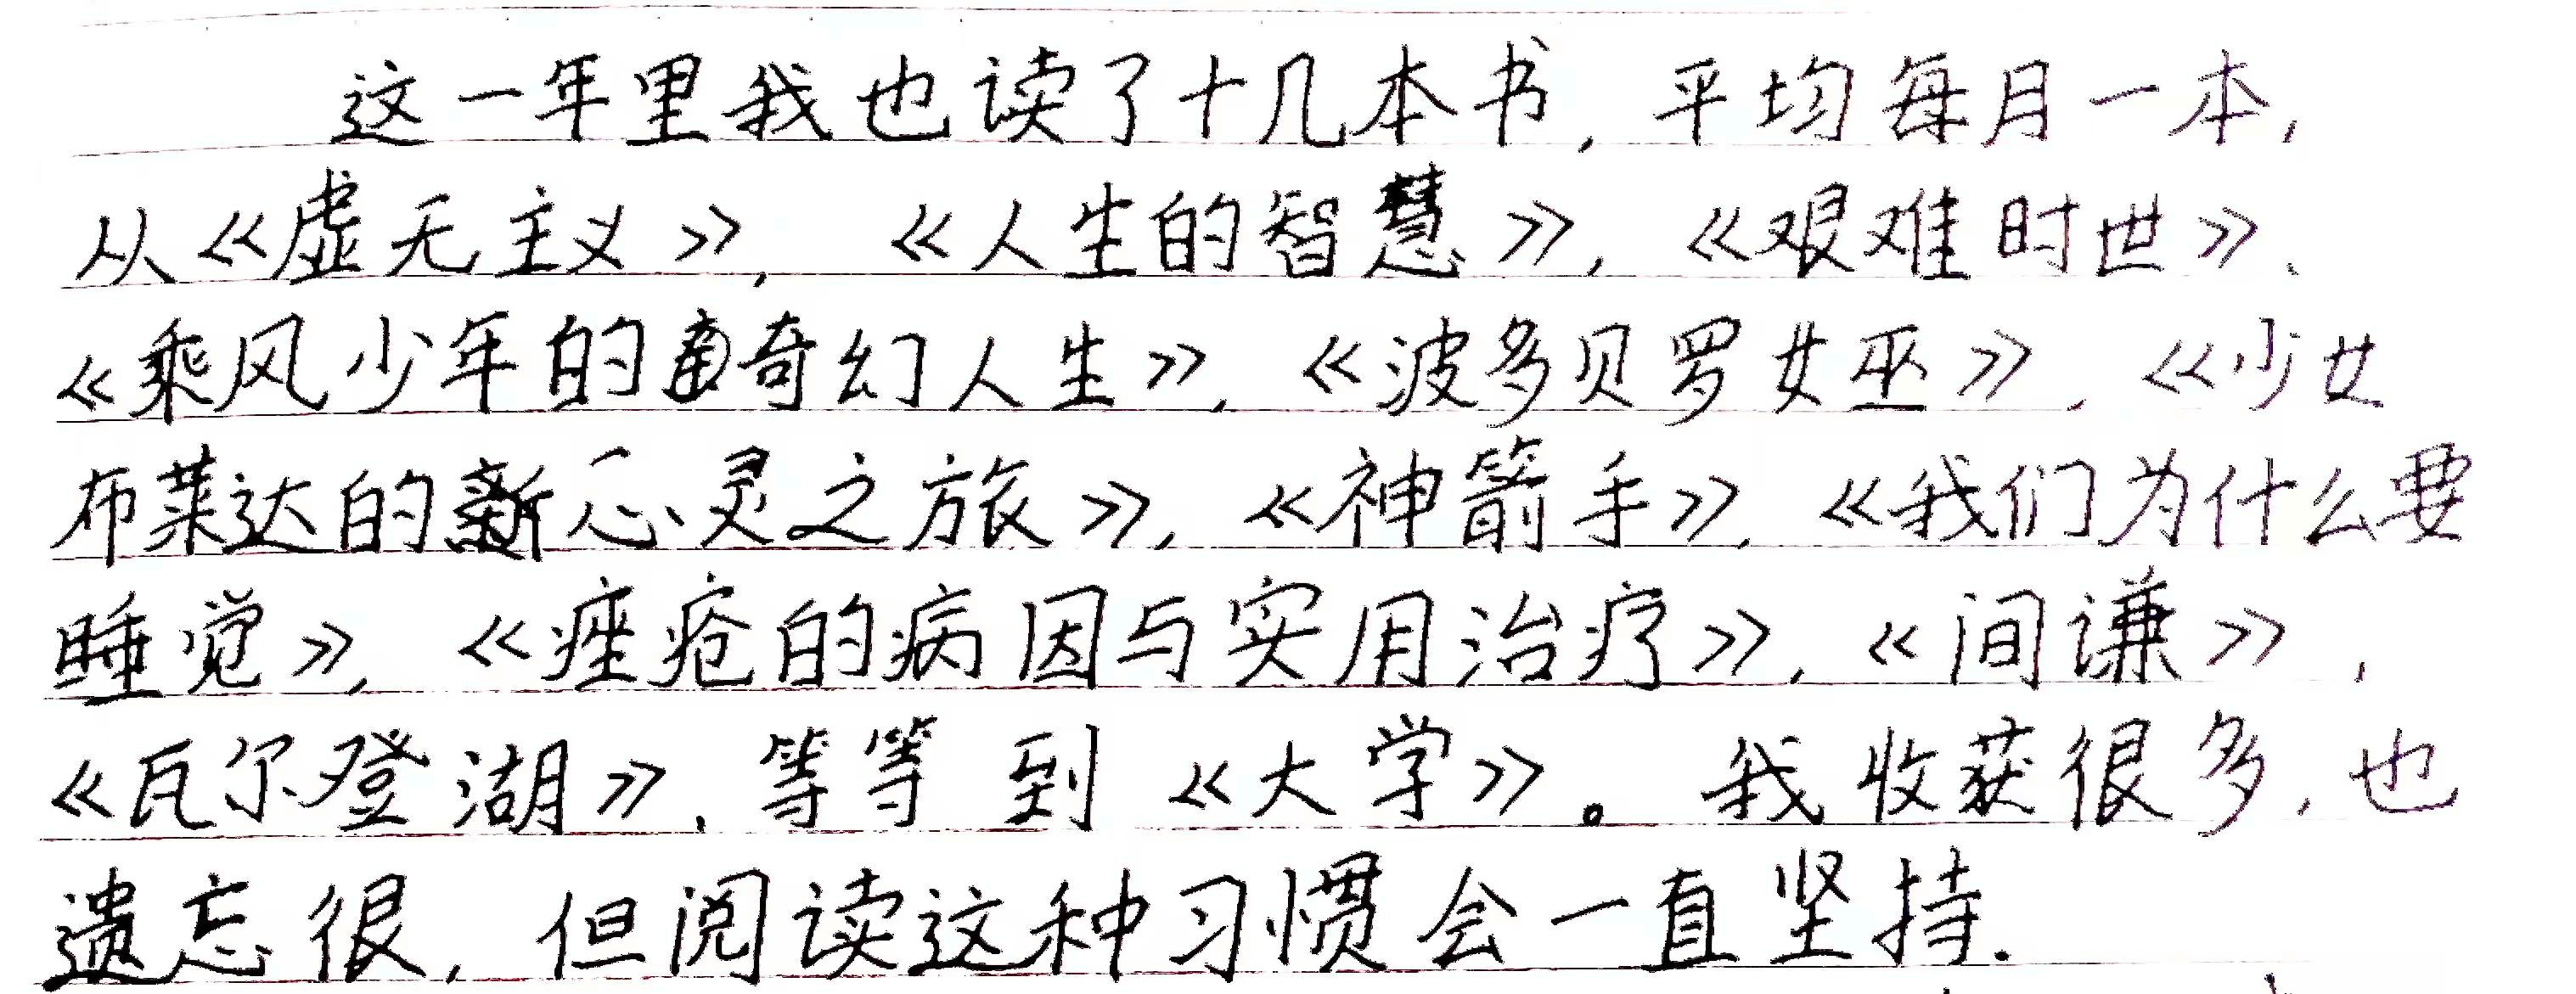 这一年里我也读了十几本书, 平均每月一本,
从《虚无主义》, 《人生的智慧》, 《艰难时世》、
《乘风少年的奇幻人生》, 《波多贝罗女巫》, 《少女
布莱达的心灵之旅》, 《神箭手》, 《我们为什么要
睡觉》, 《痤疮的病因与实用治疗》, 《间谍》,
《瓦尔登湖》, 等等 到 《大学》。我收获很多, 也
遗忘很, 但阅读这种习惯会一直坚持.